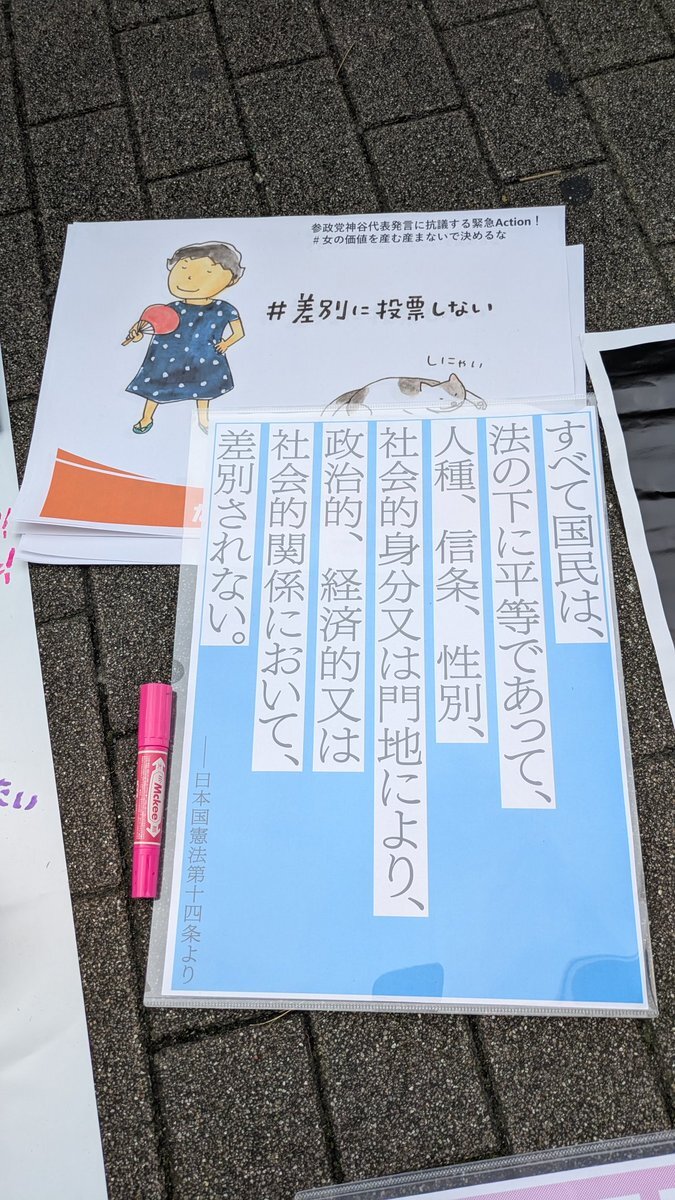 参政党神谷代表発言に抗議する緊急Action！
＃女の価値を産む産まないで決めるな
＃差別に投票しない
しにゃい
すべて国民は、
法の下に平等であって、
人種、信条、性別、
社会的身分又は門地により、
政治的、経済的又は
社会的関係において、
差別されない。
──日本国憲法第十四条より
Mckee
たい